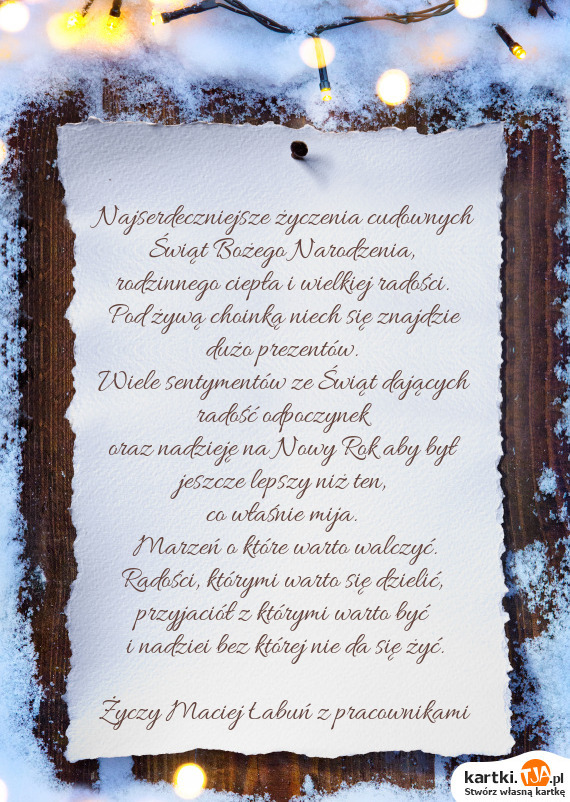 Najserdeczniejsze życzenia cudownych
Świąt Bożego Narodzenia,
rodzinnego ciepła i wielkiej radości.
Pod żywą choinką niech się znajdzie
dużo prezentów.
Wiele sentymentów ze Świąt dających
radość odpoczynek
oraz nadzieję na Nowy Rok aby był
jeszcze lepszy niż ten,
co właśnie mija.
Marzeń o które warto walczyć.
Radości, którymi warto się dzielić,
przyjaciół z którymi warto być
i nadziei bez której nie da się żyć.
Życzy Maciej Łabuń z pracownikami
kartki.TJA.pl
Stwórz własną kartkę